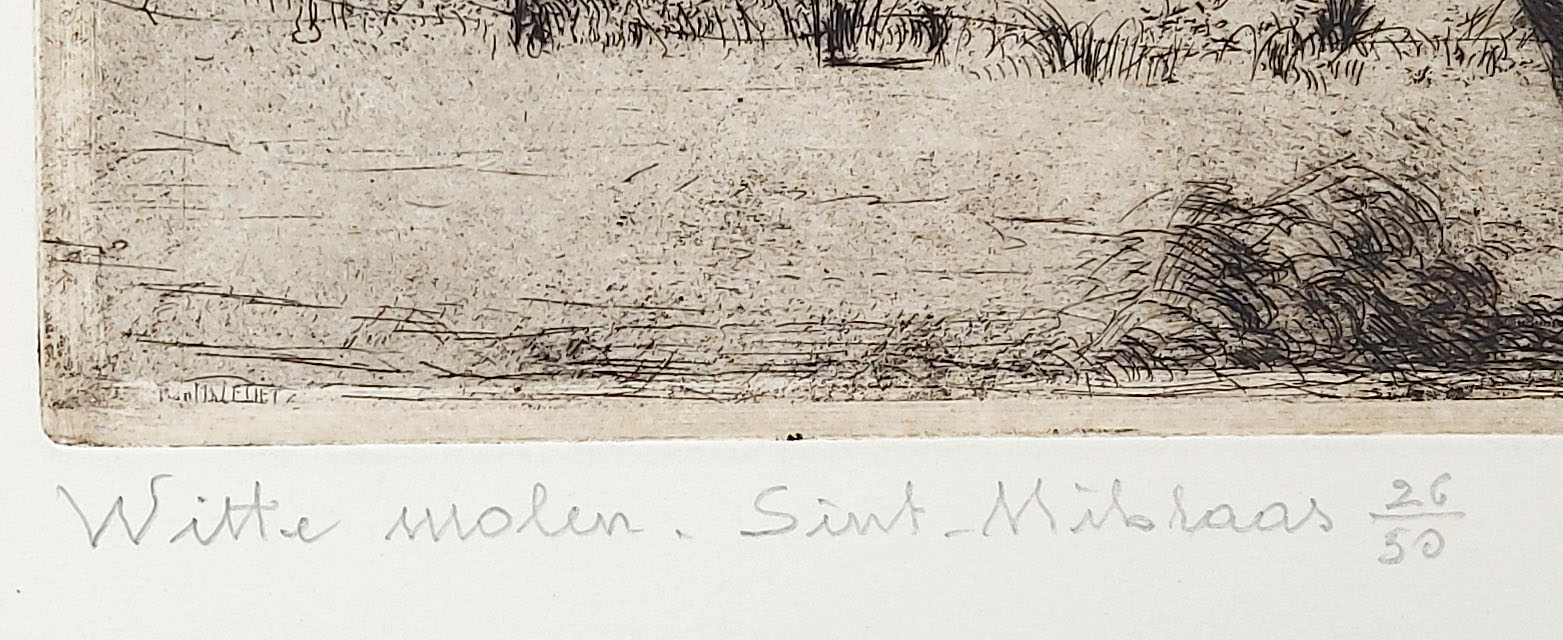 Witte molen. Sint-Niklaas 26/50